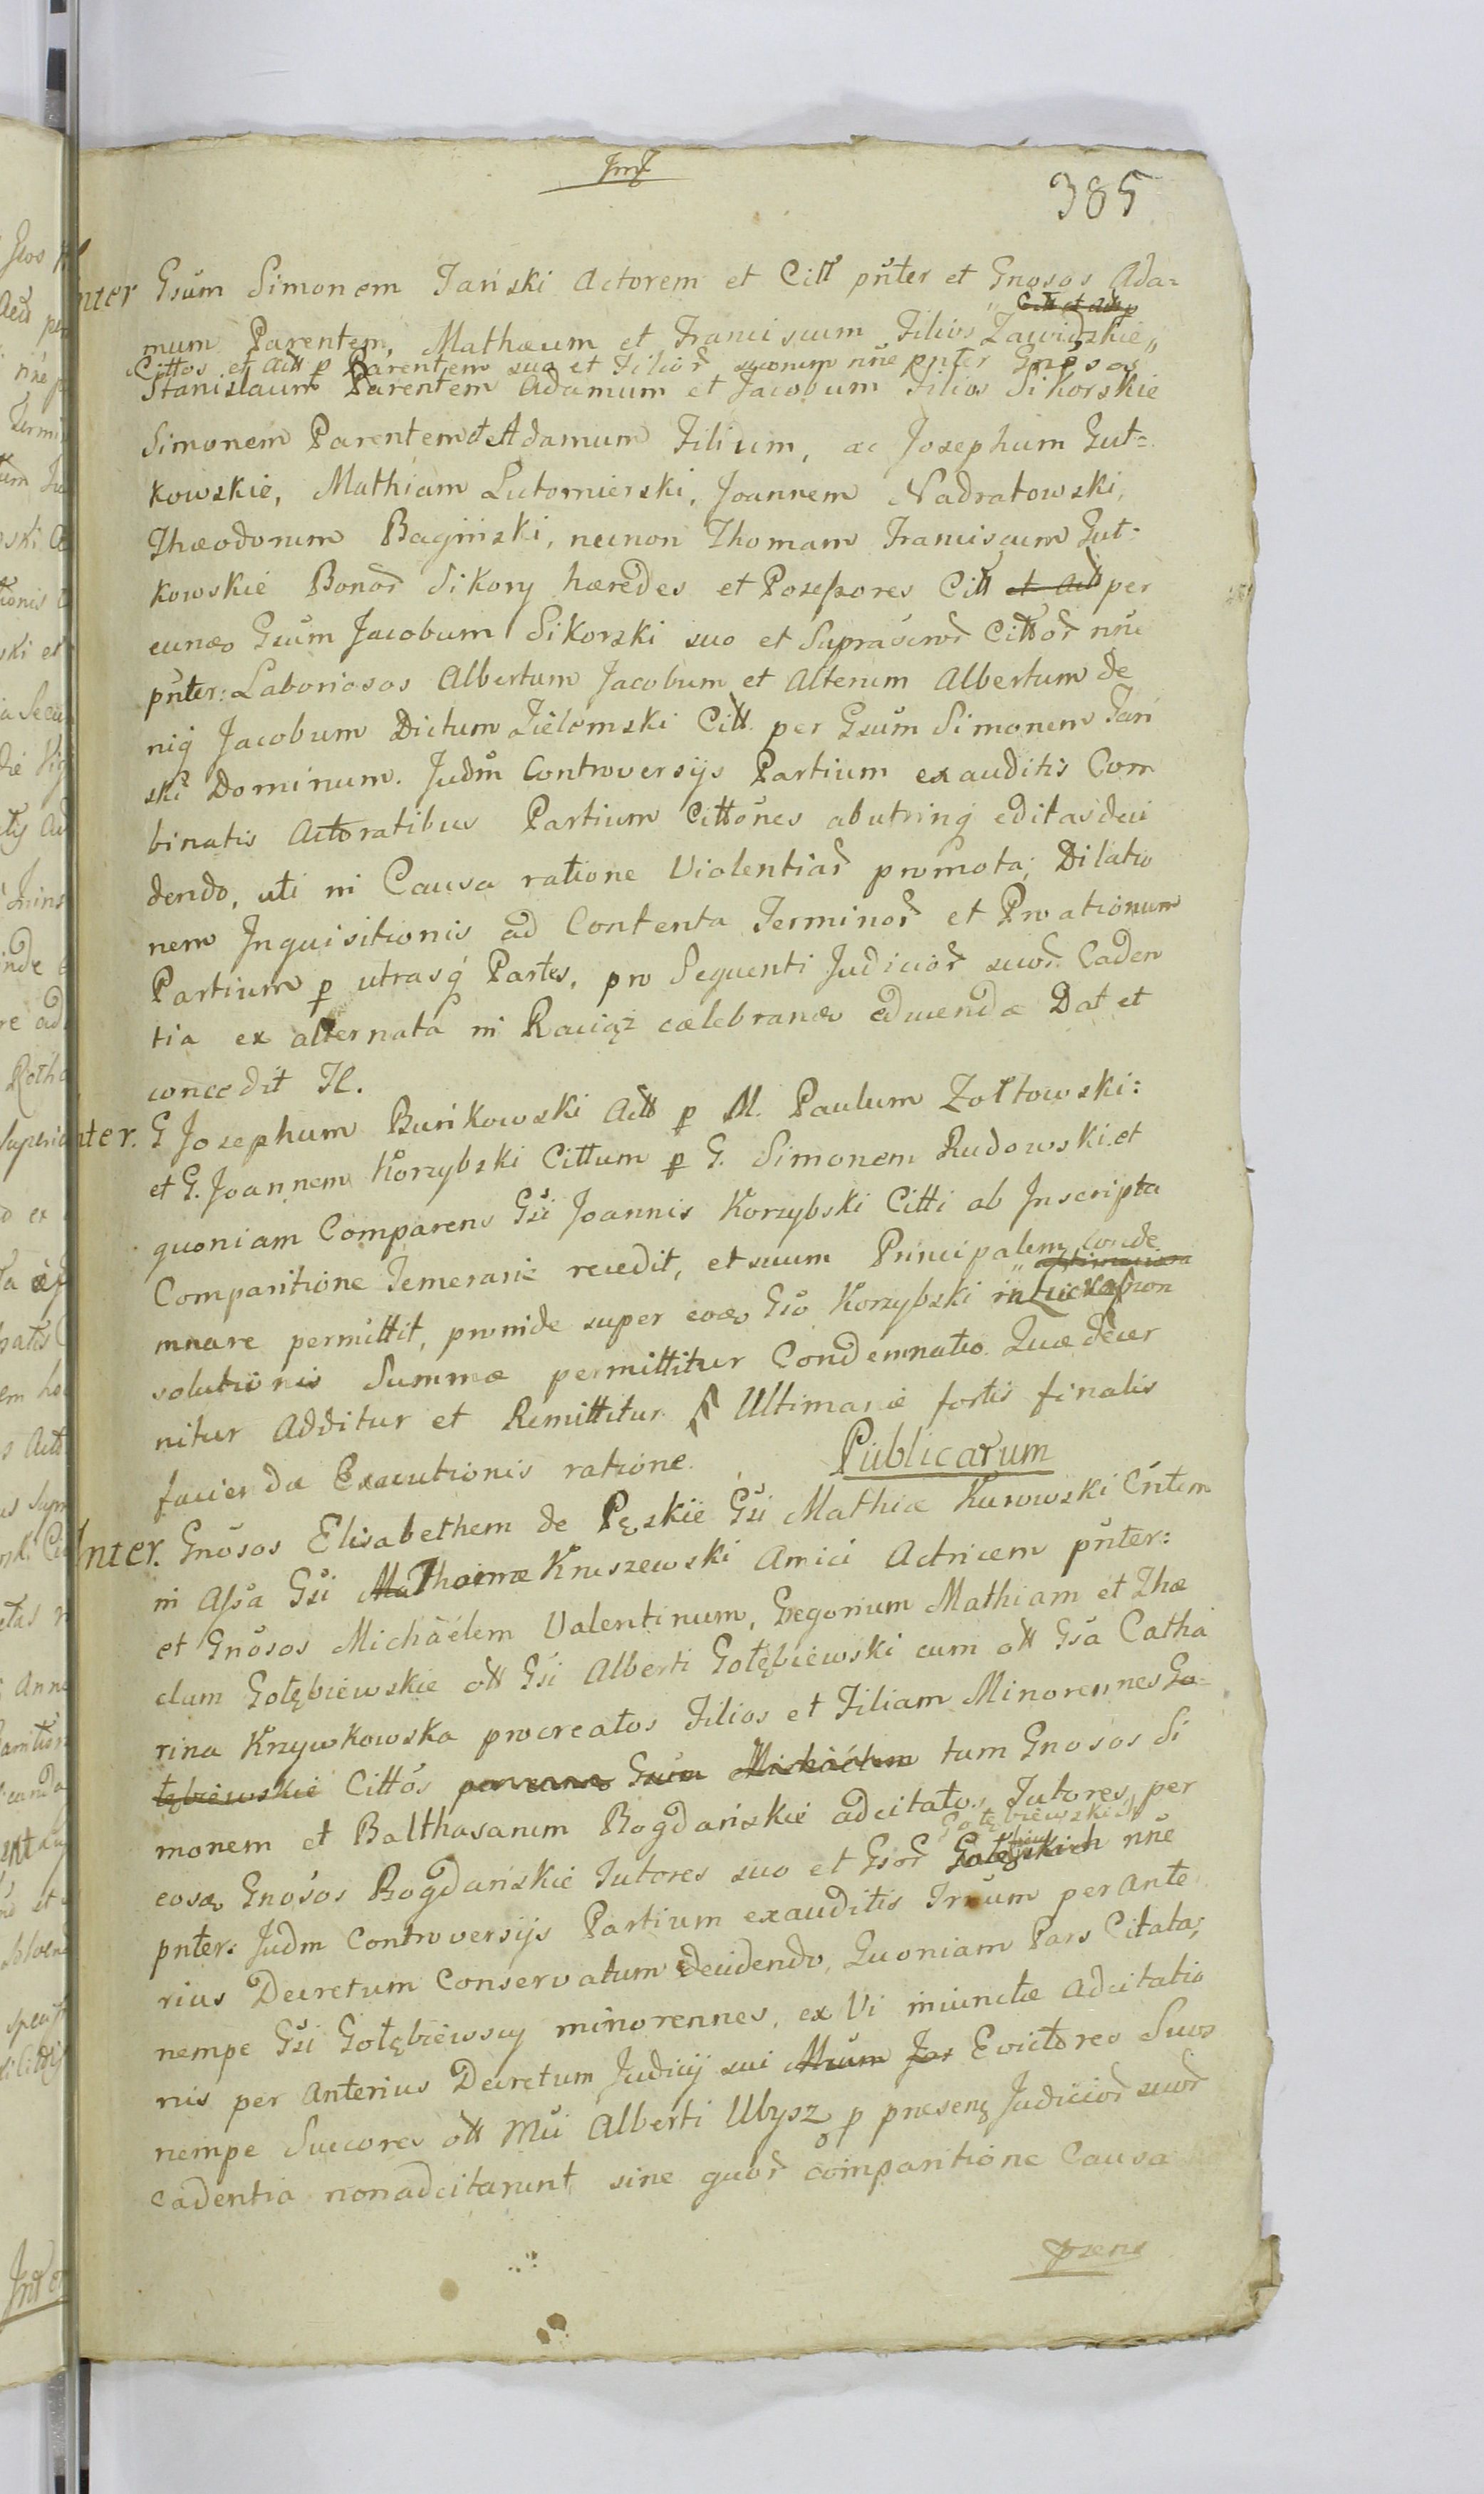 385
Inter Gsum Simonem Tański Actorem et Citt pñter et Gnosos Ada=
Citt et Actt p
mum Parentem, Mathæum et Franciscum Filios Zawidzkie„
Cittos et Actt p Parentem suo et Filior suorum nñe pnter Gnosos
Stanislaum Parentem Adamum et Jacobum Filios Sikorskie
Simonem Parentem et Adamum Filium, ac Josephum Gut=
kowskie, Mathiam Lutomierski, Joannem Nadratowski,
Thæodorum Bagiński, necnon Thomam Franciscum Gut=
kowskie Bonor Sikory hæredes et Possessores Citt et Actt per
eund Gsum Jacobum Sikorski suo et Suprascr Cittor nñe
pñter: Laboriosos Albertum Jacobum et Alterum Albertum de
niq Jacobum Dictum Zielomski Citt. per Gsum Simonem Tań
ski Dominum. Judm Controversijs Partium exauditis Com
binatis Actoratibus Partium Cittones abutrinq editas deci
dendo, uti in Causa ratione Violentiar promota, Dilatio
nem Inquisitionis ad Contenta Terminor et Proationum
Partium p utrasq Partes, pro Sequenti Judicior suor Caden
tia ex alternata in Raciąz cælebrand educendæ Dat et
concedit Il.
Inter. G Josephum Buńkowski Actt p M. Paulum Zołtowski:
et G. Joannem Korzybski Cittum p G. Simonem Rudowski et
quoniam Comparens Gsi Joannis Korzybski Citti ab Inscripta
Comparitione Temerarie recedit, et suum Principalem conde
mnare permittit, proinde super eod Gso Korzybski in
solutionis Summæ permittitur Condemnatio. Quæ decer
nitur Additur et Remittitur Ultimariæ fortis finalis
faciendæ Executionis ratione.
Publicarum
Inter. Gnosos Elisabethem de Pęskie Gsi Mathiæ Kurowski Cntem
in Assa Gsi Mathæi Kruszewski Amici Actricem pñter:
et Gnosos Michaèlem Valentinum, Gregorium Mathiam et Thæ
clam Gołębiewskie ott Gsi Alberti Gołębiewski cum ott Gsa Catha
rina Krzywkowska procreatos Filios et Filiam Minorennes Go=
łębiewskie Cittos per eund Gsum Michaèlem tum Gnosos Si
monem et Balthasarum Bogdańskie adcitatos Tutores, per
Gołębiewskich
eosd Gnosos Bogdańskie Tutores suo et Gsor nñe
pnter: Judm Controversijs Partium exauditis Irsum per Ante
rius Decretum Conservatum decidendo, Quoniam Pars Citata,
nempe Gsi Gołębiewscy minorennes, ex Vi iniunctæ adcitatio
nis per Anterius Decretum Judicij sui Msum Jos Evictores Suos
nempe Succores ott Msi Alberti Ubysz p præsenq Judicior suor
cadentia nonadcitarunt, sine quor comparitione Causa
præns